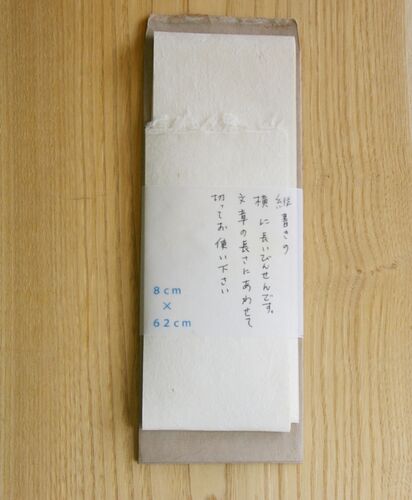 縦書きの
横に長いびんせんです。
文章の長さにあわせて
切ってお使い下さい
8cm
×
62cm